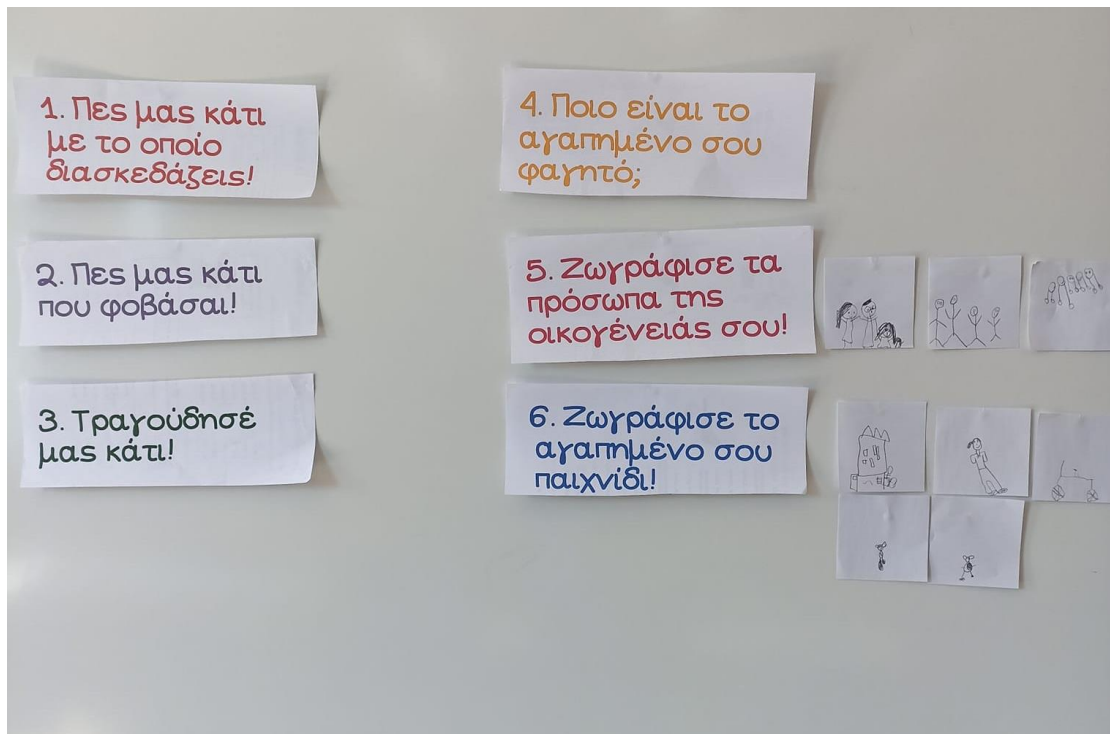 1. Πες μας κάτι
με το οποίο
διασκεδάζεις!
2. Πες μας κάτι
που φοβάσαι!
3. Τραγούδησέ
μας κάτι!
4. Ποιο είναι το
αγαπημένο σου
φαγητό;
5. Ζωγράφισε τα
πρόσωπα της
οικογένειάς σου!
6. Ζωγράφισε το
αγαπημένο σου
παιχνίδι!